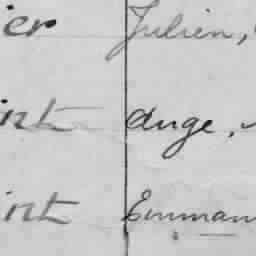 ier Julien,
int Ange,
int Emman